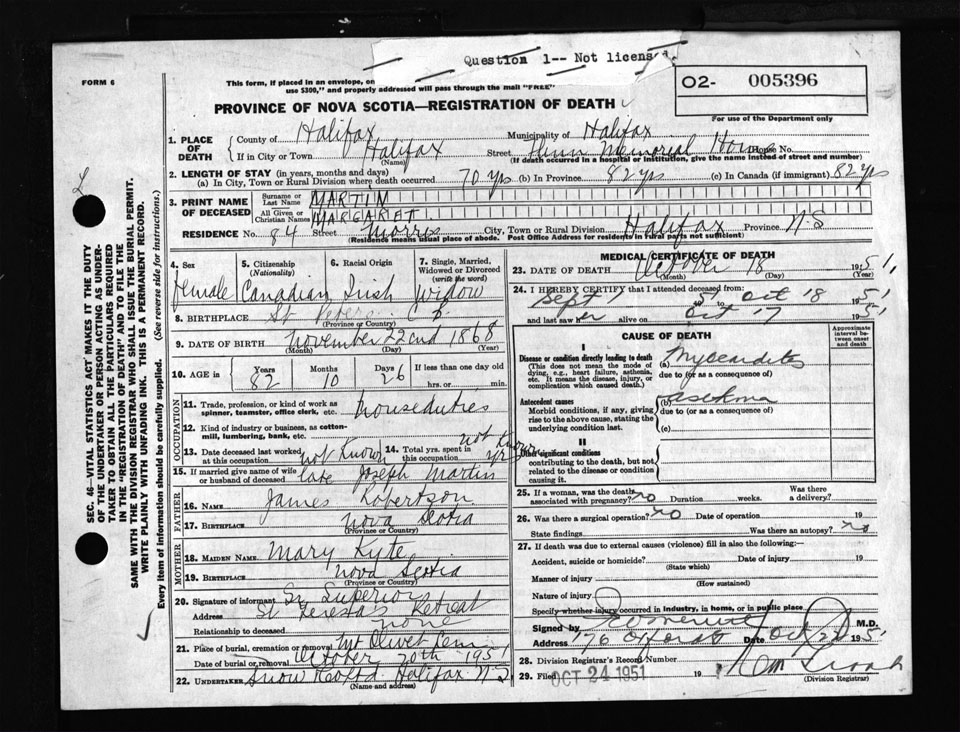 Question 1-- Not licensed.
FORM 6
This form, if placed in an envelope, on
use $300," and properly addressed will pass through the mail "FREE"
O2- 005396
For use of the Department only
PROVINCE OF NOVA SCOTIA—REGISTRATION OF DEATH
1. PLACE OF DEATH
County of Halifax Municipality of Halifax
If in City or Town Halifax (Name) Street Flinn Memorial Home House No.
(If death occurred in a hospital or institution, give the name instead of street and number)
2. LENGTH OF STAY (in years, months and days)
(a) In City, Town or Rural Division where death occurred 70 yrs (b) In Province 82 yrs (c) In Canada (if immigrant) 82 yrs
3. PRINT NAME OF DECEASED
Surname or Last Name MARTIN
All Given or Christian Names MARGARET
RESIDENCE No. 84 Street Morris City, Town or Rural Division Halifax Province N.S
(Residence means usual place of abode. Post Office Address for residents in rural parts not sufficient)
4. Sex Female
5. Citizenship (Nationality) Canadian
6. Racial Origin Irish
7. Single, Married, Widowed or Divorced (write the word) Widow
8. BIRTHPLACE St Peters C.B.
(Province or Country)
9. DATE OF BIRTH November 22nd 1868
(Month) (Day) (Year)
10. AGE in Years 82 Months 10 Days 26 If less than one day old hrs. or min.
OCCUPATION
11. Trade, profession, or kind of work as spinner, teamster, office clerk, etc. Houseduties
12. Kind of industry or business, as cotton-mill, lumbering, bank, etc.
13. Date deceased last worked at this occupation not known
14. Total yrs. spent in this occupation not known yrs
15. If married give name of wife or husband of deceased late Joseph Martin
FATHER
16. NAME James Robertson
17. BIRTHPLACE Nova Scotia
(Province or Country)
MOTHER
18. MAIDEN NAME Mary Kyte
19. BIRTHPLACE Nova Scotia
(Province or Country)
20. Signature of informant Sr Superior
Address St Teresa's Retreat
Relationship to deceased none
21. Place of burial, cremation or removal Mt Olivet Cem
Date of burial or removal October 20th 1951
22. UNDERTAKER Snow & Co Ltd. Halifax N.S
(Name and address)
MEDICAL CERTIFICATE OF DEATH
23. DATE OF DEATH October 18 1951
(Month) (Day) (Year)
24. I HEREBY CERTIFY that I attended deceased from:
Sept 1 51 Oct 18 1951
and last saw her alive on Oct 17 1951
CAUSE OF DEATH
Approximate interval between onset and death
I
Disease or condition directly leading to death
(This does not mean the mode of dying, e.g., heart failure, asthenia, etc. It means the disease, injury, or complication which caused death.)
(a) Myocarditis
due to (or as a consequence of)
Antecedent causes
Morbid conditions, if any, giving rise to the above cause, stating the underlying condition last.
(b) asthma
due to (or as a consequence of)
(c)
II
Other significant conditions
contributing to the death, but not related to the disease or condition causing it.
25. If a woman, was the death associated with pregnancy? no Duration weeks. Was there a delivery?
26. Was there a surgical operation? no Date of operation 19
State findings Was there an autopsy? no
27. If death was due to external causes (violence) fill in also the following:—
Accident, suicide or homicide? Date of injury 19
(State which)
Manner of injury
(How sustained)
Nature of injury
Specify whether injury occurred in industry, in home, or in public place
Signed by M.D.
Address 176 Date Oct 22 1951
28. Division Registrar's Record Number
29. Filed OCT 24 1951 19
(Division Registrar)
SEC. 46—VITAL STATISTICS ACT MAKES IT THE DUTY
OF THE UNDERTAKER OR PERSON ACTING AS UNDER-
TAKER TO OBTAIN ALL THE PARTICULARS REQUIRED
IN THE "REGISTRATION OF DEATH" AND TO FILE THE
SAME WITH THE DIVISION REGISTRAR WHO SHALL ISSUE THE BURIAL PERMIT.
WRITE PLAINLY WITH UNFADING INK. THIS IS A PERMANENT RECORD.
Every item of information should be carefully supplied. (See reverse side for instructions.)